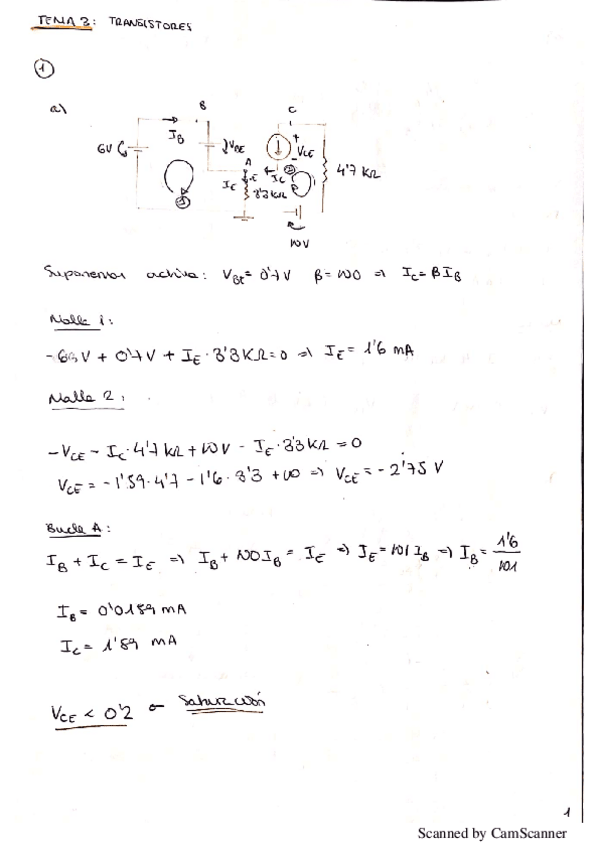 TEMA 3: TRANSISTORES
1
a)
B
C
I_B
6V
V_BE
+
V_CE
-
A
I_C
I_E
3'3 KΩ
2
4'7 KΩ
1
10V
Suponemos activa: V_BE = 0'7V β = 100 ⇒ I_C = βI_B
Malla 1:
V + 0'7V + I_E · 3'3KΩ = 0 ⇒ I_E = 1'6 mA
Malla 2:
-V_CE - I_C · 4'7 KΩ + 10V - I_E · 3'3 KΩ = 0
V_CE = -1'59 · 4'7 - 1'6 · 3'3 + 10 ⇒ V_CE = -2'75 V
Bucle A:
I_B + I_C = I_E ⇒ I_B + 100I_B = I_E ⇒ I_E = 101 I_B ⇒ I_B = 1'6/101
I_B = 0'0159 mA
I_C = 1'59 mA
V_CE < 0'2 Saturación
1
Scanned by CamScanner